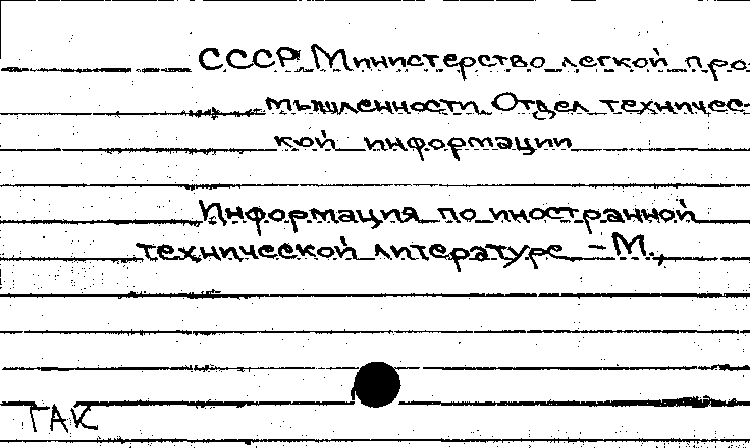 СССР. Министерство легкой про
мышленности. Отдел техничес-
кой информации
Информация по иностранной
технической литературе – М.,
ГАК